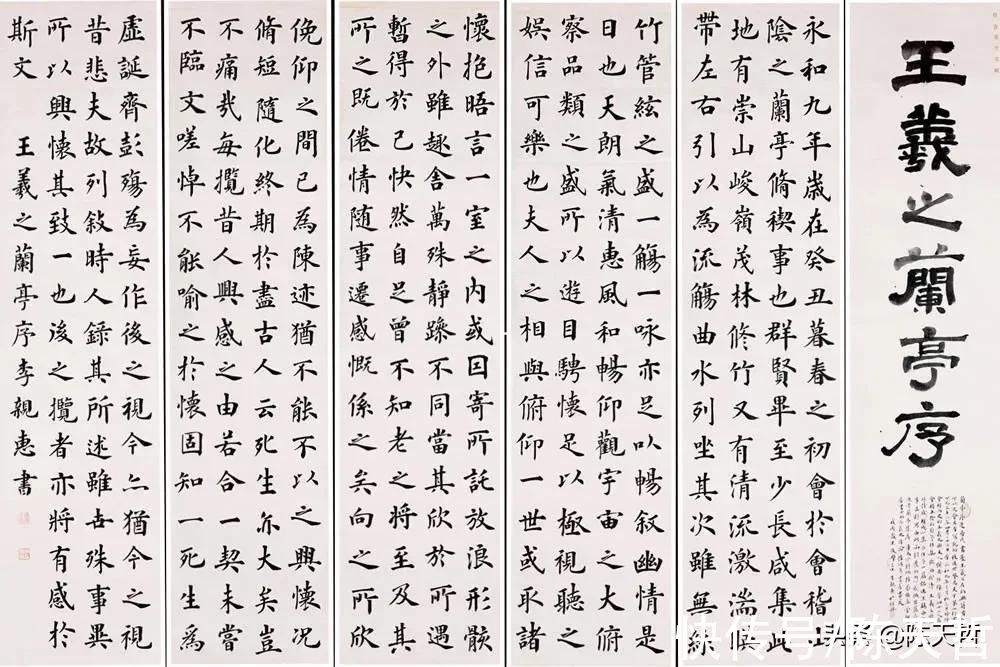 王羲之蘭亭序
永和九年歲在癸丑暮春之初會於會稽山
陰之蘭亭脩禊事也群賢畢至少長咸集此
地有崇山峻嶺茂林修竹又有清流激湍映
帶左右引以為流觴曲水列坐其次雖無絲
竹管絃之盛一觴一咏亦足以暢敘幽情是
日也天朗氣清惠風和暢仰觀宇宙之大俯
察品類之盛所以遊目騁懷足以極視聽之
娛信可樂也夫人之相與俯仰一世或取諸
懷抱晤言一室之內或因寄所託放浪形骸
之外雖趣舍萬殊靜躁不同當其欣於所遇
暫得於己快然自足曾不知老之將至及其
所之既倦情隨事遷感慨係之矣向之所欣
俛仰之間已為陳迹猶不能不以之興懷況
脩短隨化終期於盡古人云死生亦大矣豈
不痛哉每攬昔人興感之由若合一契未嘗
不臨文嗟悼不能喻之於懷固知一死生為
虛誕齊彭殤為妄作後之視今亦猶今之視
昔悲夫故列敘時人錄其所述雖世殊事異
所以興懷其致一也後之攬者亦將有感於
斯文 王羲之蘭亭序李親惠書
快传号/陈天哲
头条 @陈天哲